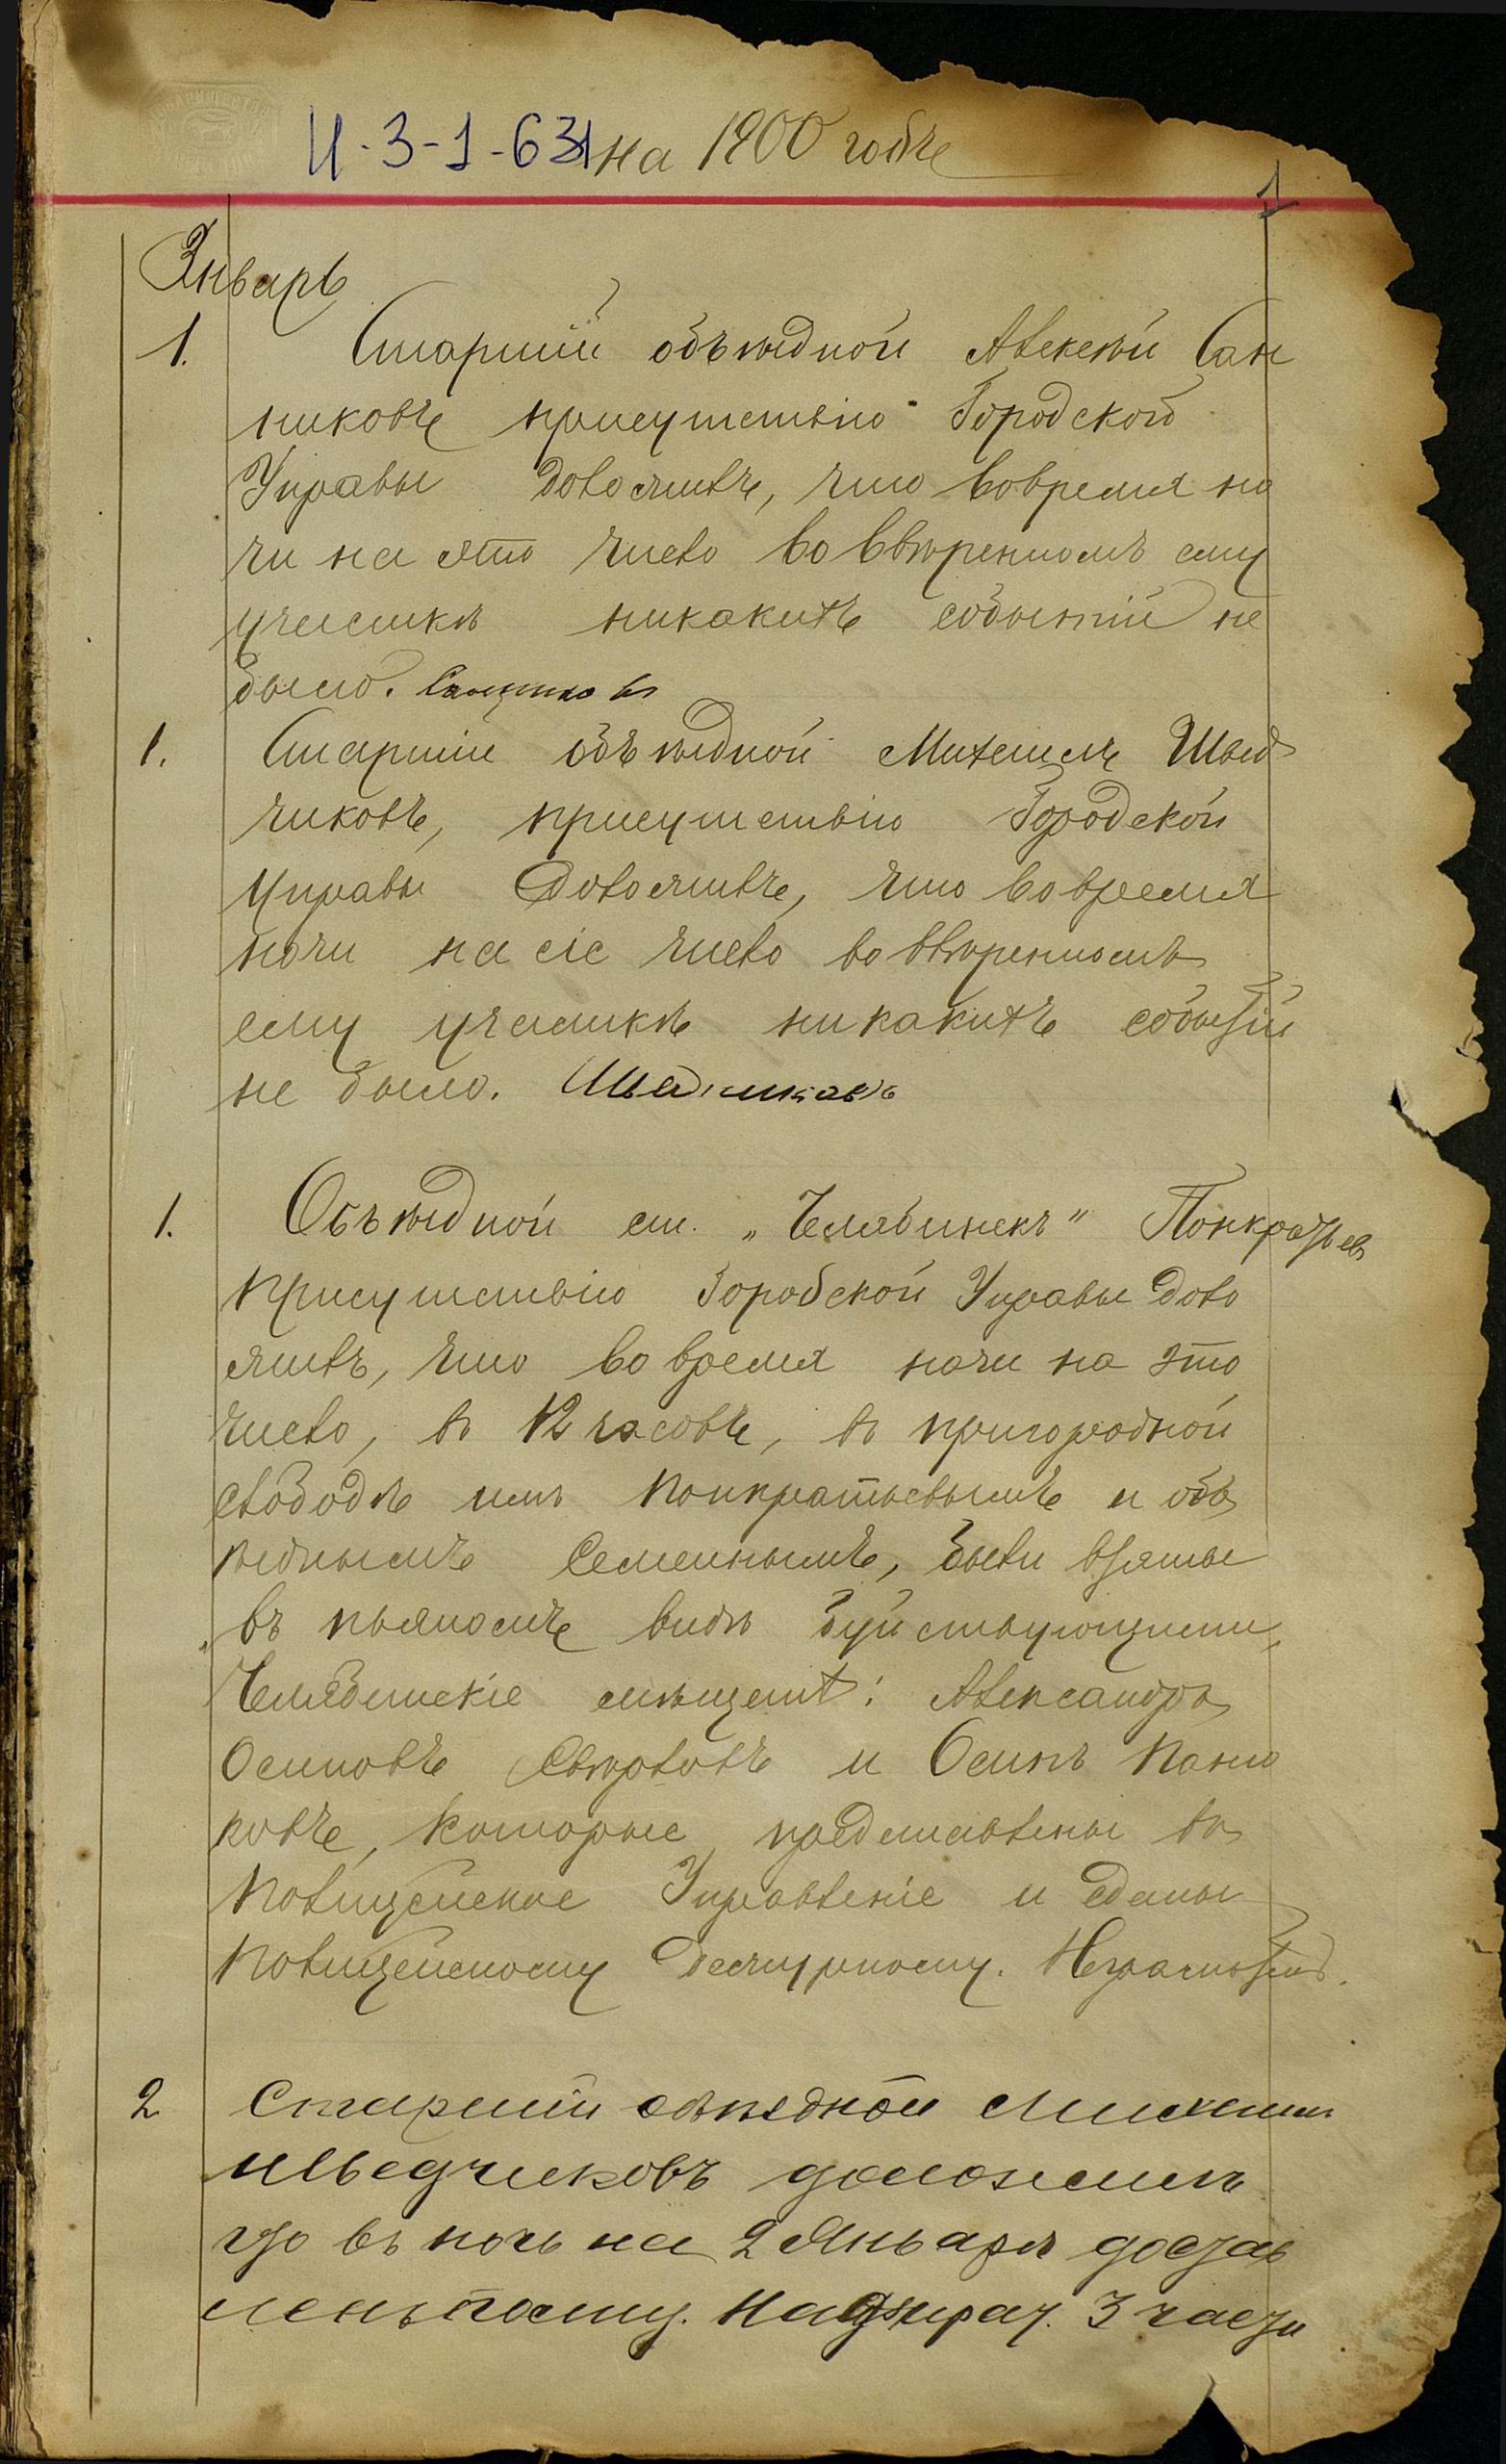 И-3-1-631 на 1900 годъ
1
Январь
1. Старшiй объѣздной Алексѣй Сан
никовъ присутствiю Городской
Управы доложилъ, что вовремя но
чи на это число во ввѣренномъ ему
участкѣ никакихъ событiй не
было. Санников
1. Старшiй объѣздной Михаилъ Швед
чиковъ, присутствiю Городской
Управы доложилъ, что вовремя
ночи на сiе число во ввѣренномъ
ему участкѣ никакихъ событiй
не было. Шведчиковъ
1. Объѣздной ст. „Челябинскъ" Понкратьев
присутствiю Городской Управы доло
жилъ, что во время ночи на это
число, въ 12 часовъ, въ пригородной
слободѣ имъ Понкратьевымъ и объ
ѣзднымъ Семеннымъ, были взяты
въ пьяномъ видѣ буйствующими,
Челябинскiе мѣщане: Александръ
Осиповъ и Осипъ
ковъ, которые представлены въ
Полицейское Управленiе и сданы
Полицейскому дежурному. Неграмотной.
2 Старшiй объѣздной Михаилъ
Шведчиковъ доложилъ
что въ ночь на 2 Января достав
ленъ 3 части